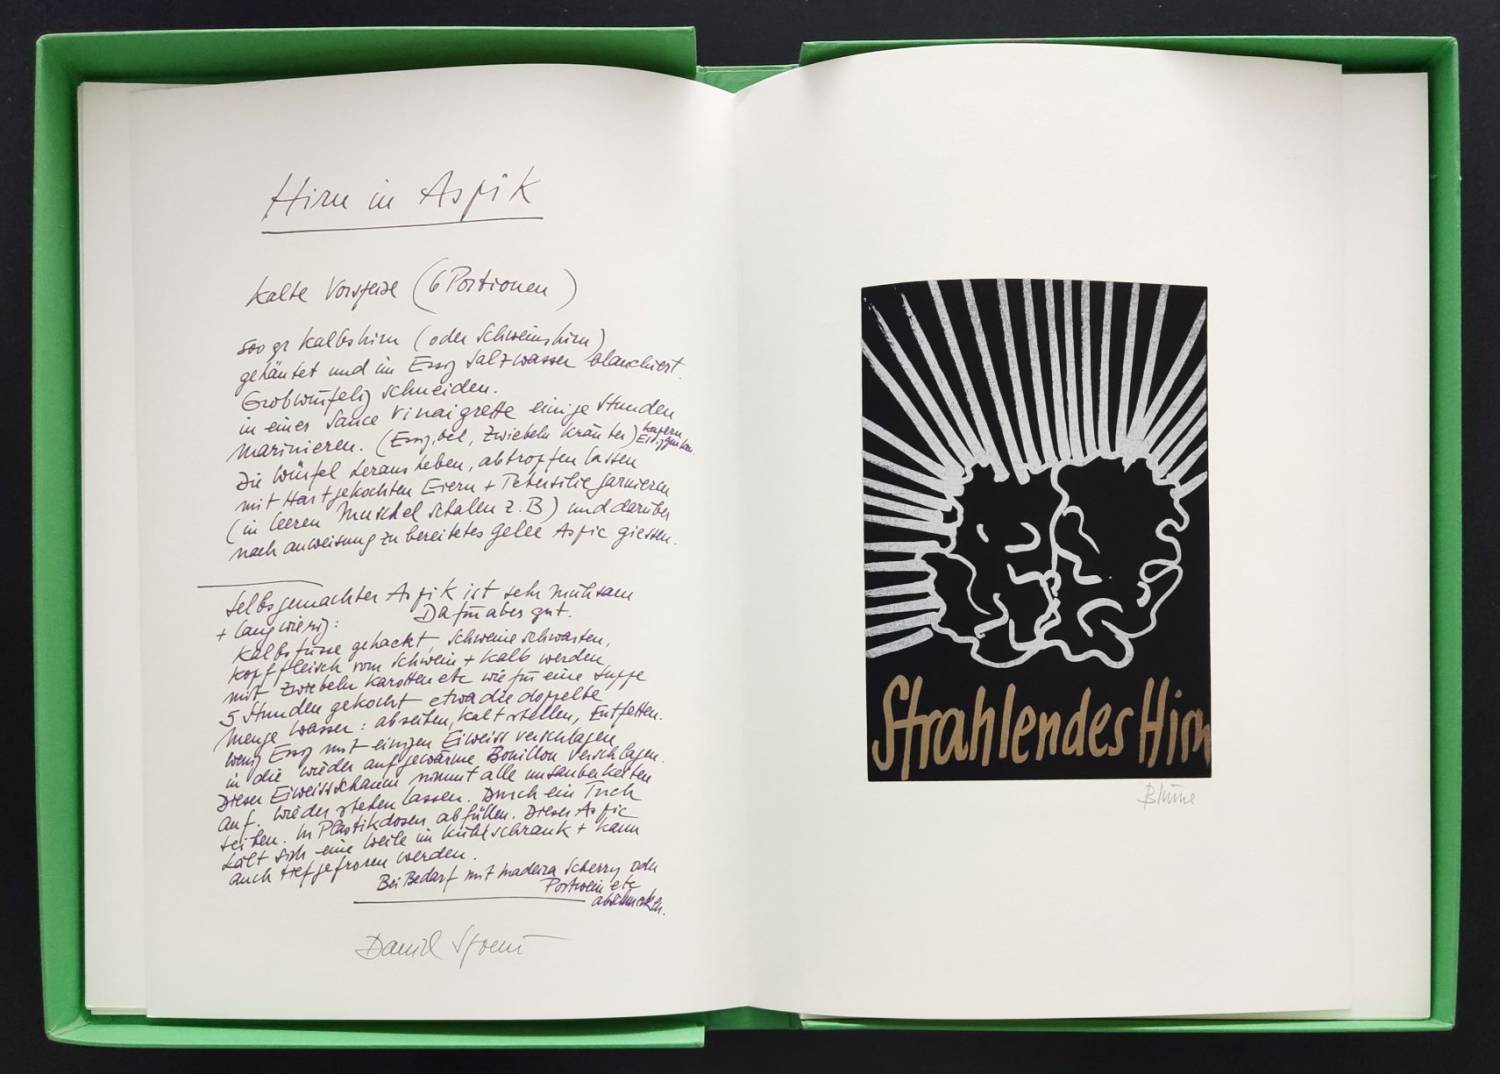 Hirn in Aspik
Kalte Vorspeise (6 Portionen)
500 gr Kalbshirn (oder Schweinshirn)
gehäutet und im Essig Salzwasser blanchiert.
Grobwürfelig schneiden.
in einer Sauce Vinaigrette einige Stunden
marinieren. (Essig, öel, Zwiebeln Kräuter)
Kapern
Die Würfel herausheben, abtropfen lassen
mit Hartgekochten Eiern + Petersilie garnieren
(in leeren Muschel schalen z.B) und darüber
nach anweisung zu bereitetes Gelee Aspic giessen.
Selbsgemachter Aspik ist sehr mühsam
+ langwierig: Dafür aber gut.
Kalbsfüsse gehackt, Schweineschwarten,
Kopffleisch vom Schwein + Kalb werden
mit Zwiebeln Karotten etc wie für eine Suppe
5 Stunden gekocht etwa die doppelte
Menge Wasser: abseihen, kalt stellen, Entfetten.
wenig Essig mit einigen Eiweiss verschlagen
in die wieder aufgewärme Bouillon verschlagen.
Dieser Eiweissschaum nimmt alle unsauberkeiten
auf. wieder stehen lassen. Durch ein Tuch
seihen. In Plastikdosen abfüllen. Dieser Aspic
hält sich eine Weile im Kühlschrank + kann
auch tiefgefroren werden.
Bei Bedarf mit madeira Scherry oder
Portwein etc
abschmecken.
Daniel Spoerri
Strahlendes Hirn
Blume